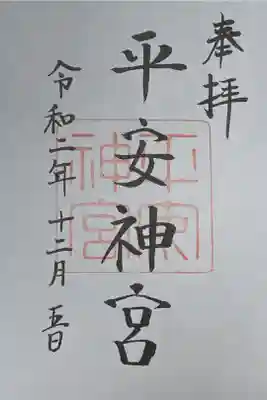 奉拝
平安神宮
令和二年 十二月 五日
平安
神宮